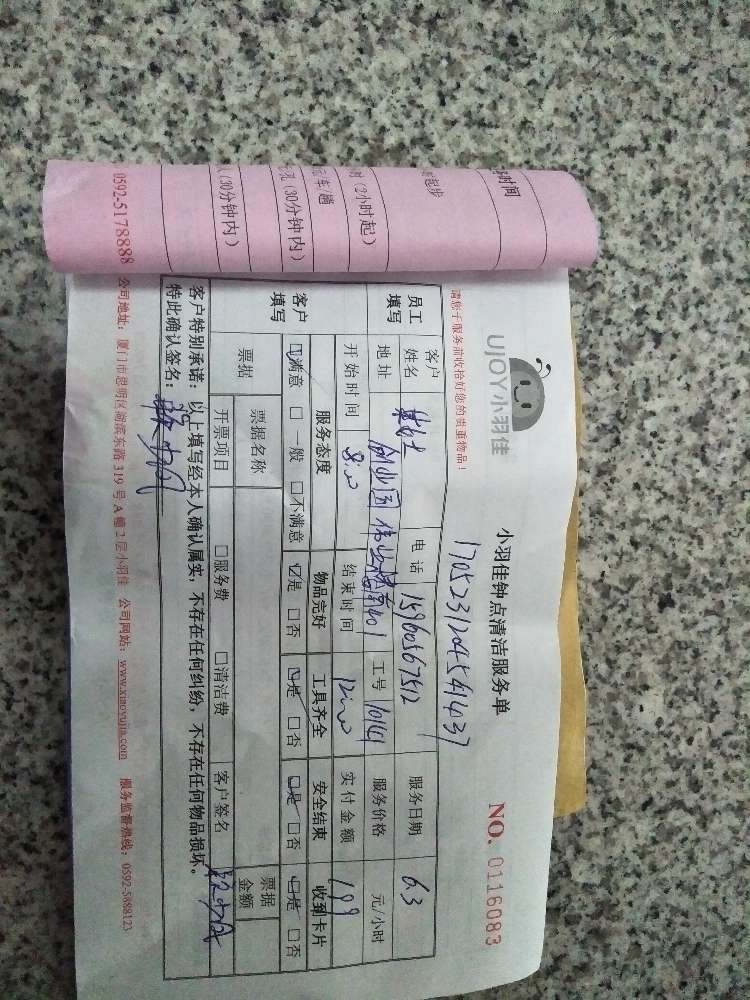 UJOY小羽佳
小羽佳钟点清洁服务单
NO. 0116083
请您于服务前收拾好您的贵重物品！
员工填写
客户姓名
电话 15960567512
服务日期 6.3
地址
工号 10141
服务价格 元/小时
开始时间 8:00
结束时间 12:00
实付金额 199
客户填写
服务态度 物品完好 工具齐全 安全结束 收到卡片
☑满意 □一般 □不满意 ☑是 □否 ☑是 □否 ☑是 □否 ☑是 □否
票据 票据名称 票据金额
开票项目 □服务费 □清洁费 客户签名
客户特别承诺：以上填写经本人确认属实，不存在任何纠纷，不存在任何物品损坏。
特此确认签名：
0592-5178888 公司地址：厦门市思明区湖滨东路319号A幢2层小羽佳 公司网站：www.xiaoyujia.com 服务监督热线：0592-5888123
时间
起步
时（2小时起）
元/车/趟
孔（30分钟内）
（30分钟内）